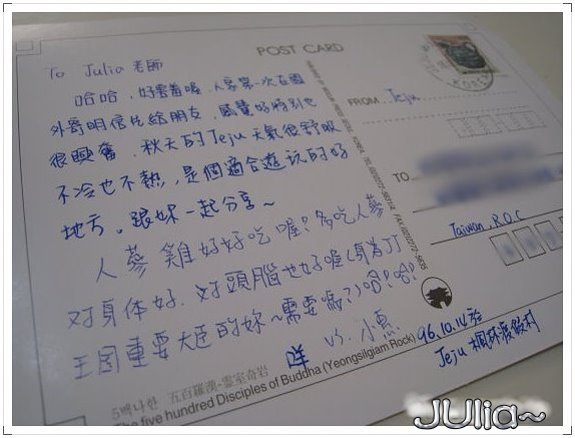 POST CARD
To Julia 老師
哈哈，好害羞喔，人家第一次在國
外寄明信片給朋友，感覺好特別也
很興奮，秋天的Jeju天氣很舒服
不冷也不熱，是個適合遊玩的好
地方。跟妹一起分享~
人蔘雞好好吃喔！多吃人蔘
對身体好，對頭腦也好喔(身為JJ
王國重要大臣的妳~需要嗎?)哈!哈!
FROM Jeju
TO
Taiwan, R.O.C
96.10.14 於
Jeju 楓林渡假村
5백나한 五百羅漢-靈室奇岩
The five hundred Disciples of Buddha (Yeongsilgiam Rock)
JUlia~